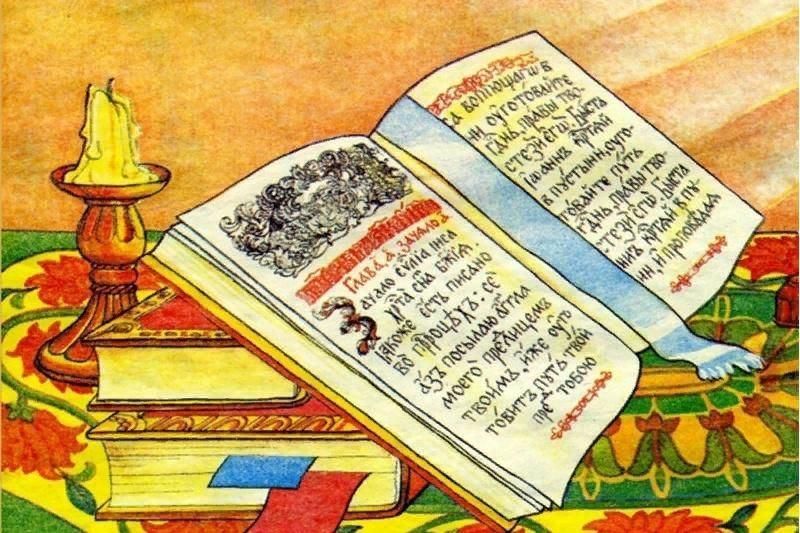 Глава, а҃. зачало а҃
Зачало еѵ҃лїа іиса
хр҃та сн҃а бж҃їя,
Якоже есть писано
во прⷪрцѣхъ: се
азъ посылаю аггла
моего пред лицемъ
твоимъ, иже оуго
товитъ путь твой
пред тобою
а вопіющагѡ в
ни оуготовайте
гд҃нь, правы тво-
стези егѡ. бысть
ѡаннъ кр҃тай
в пустыни, оуго-
товайте путь
гд҃нь, правы тво-
стези егѡ. бысть
аннъ кр҃тай в пу
ни, и проповѣда